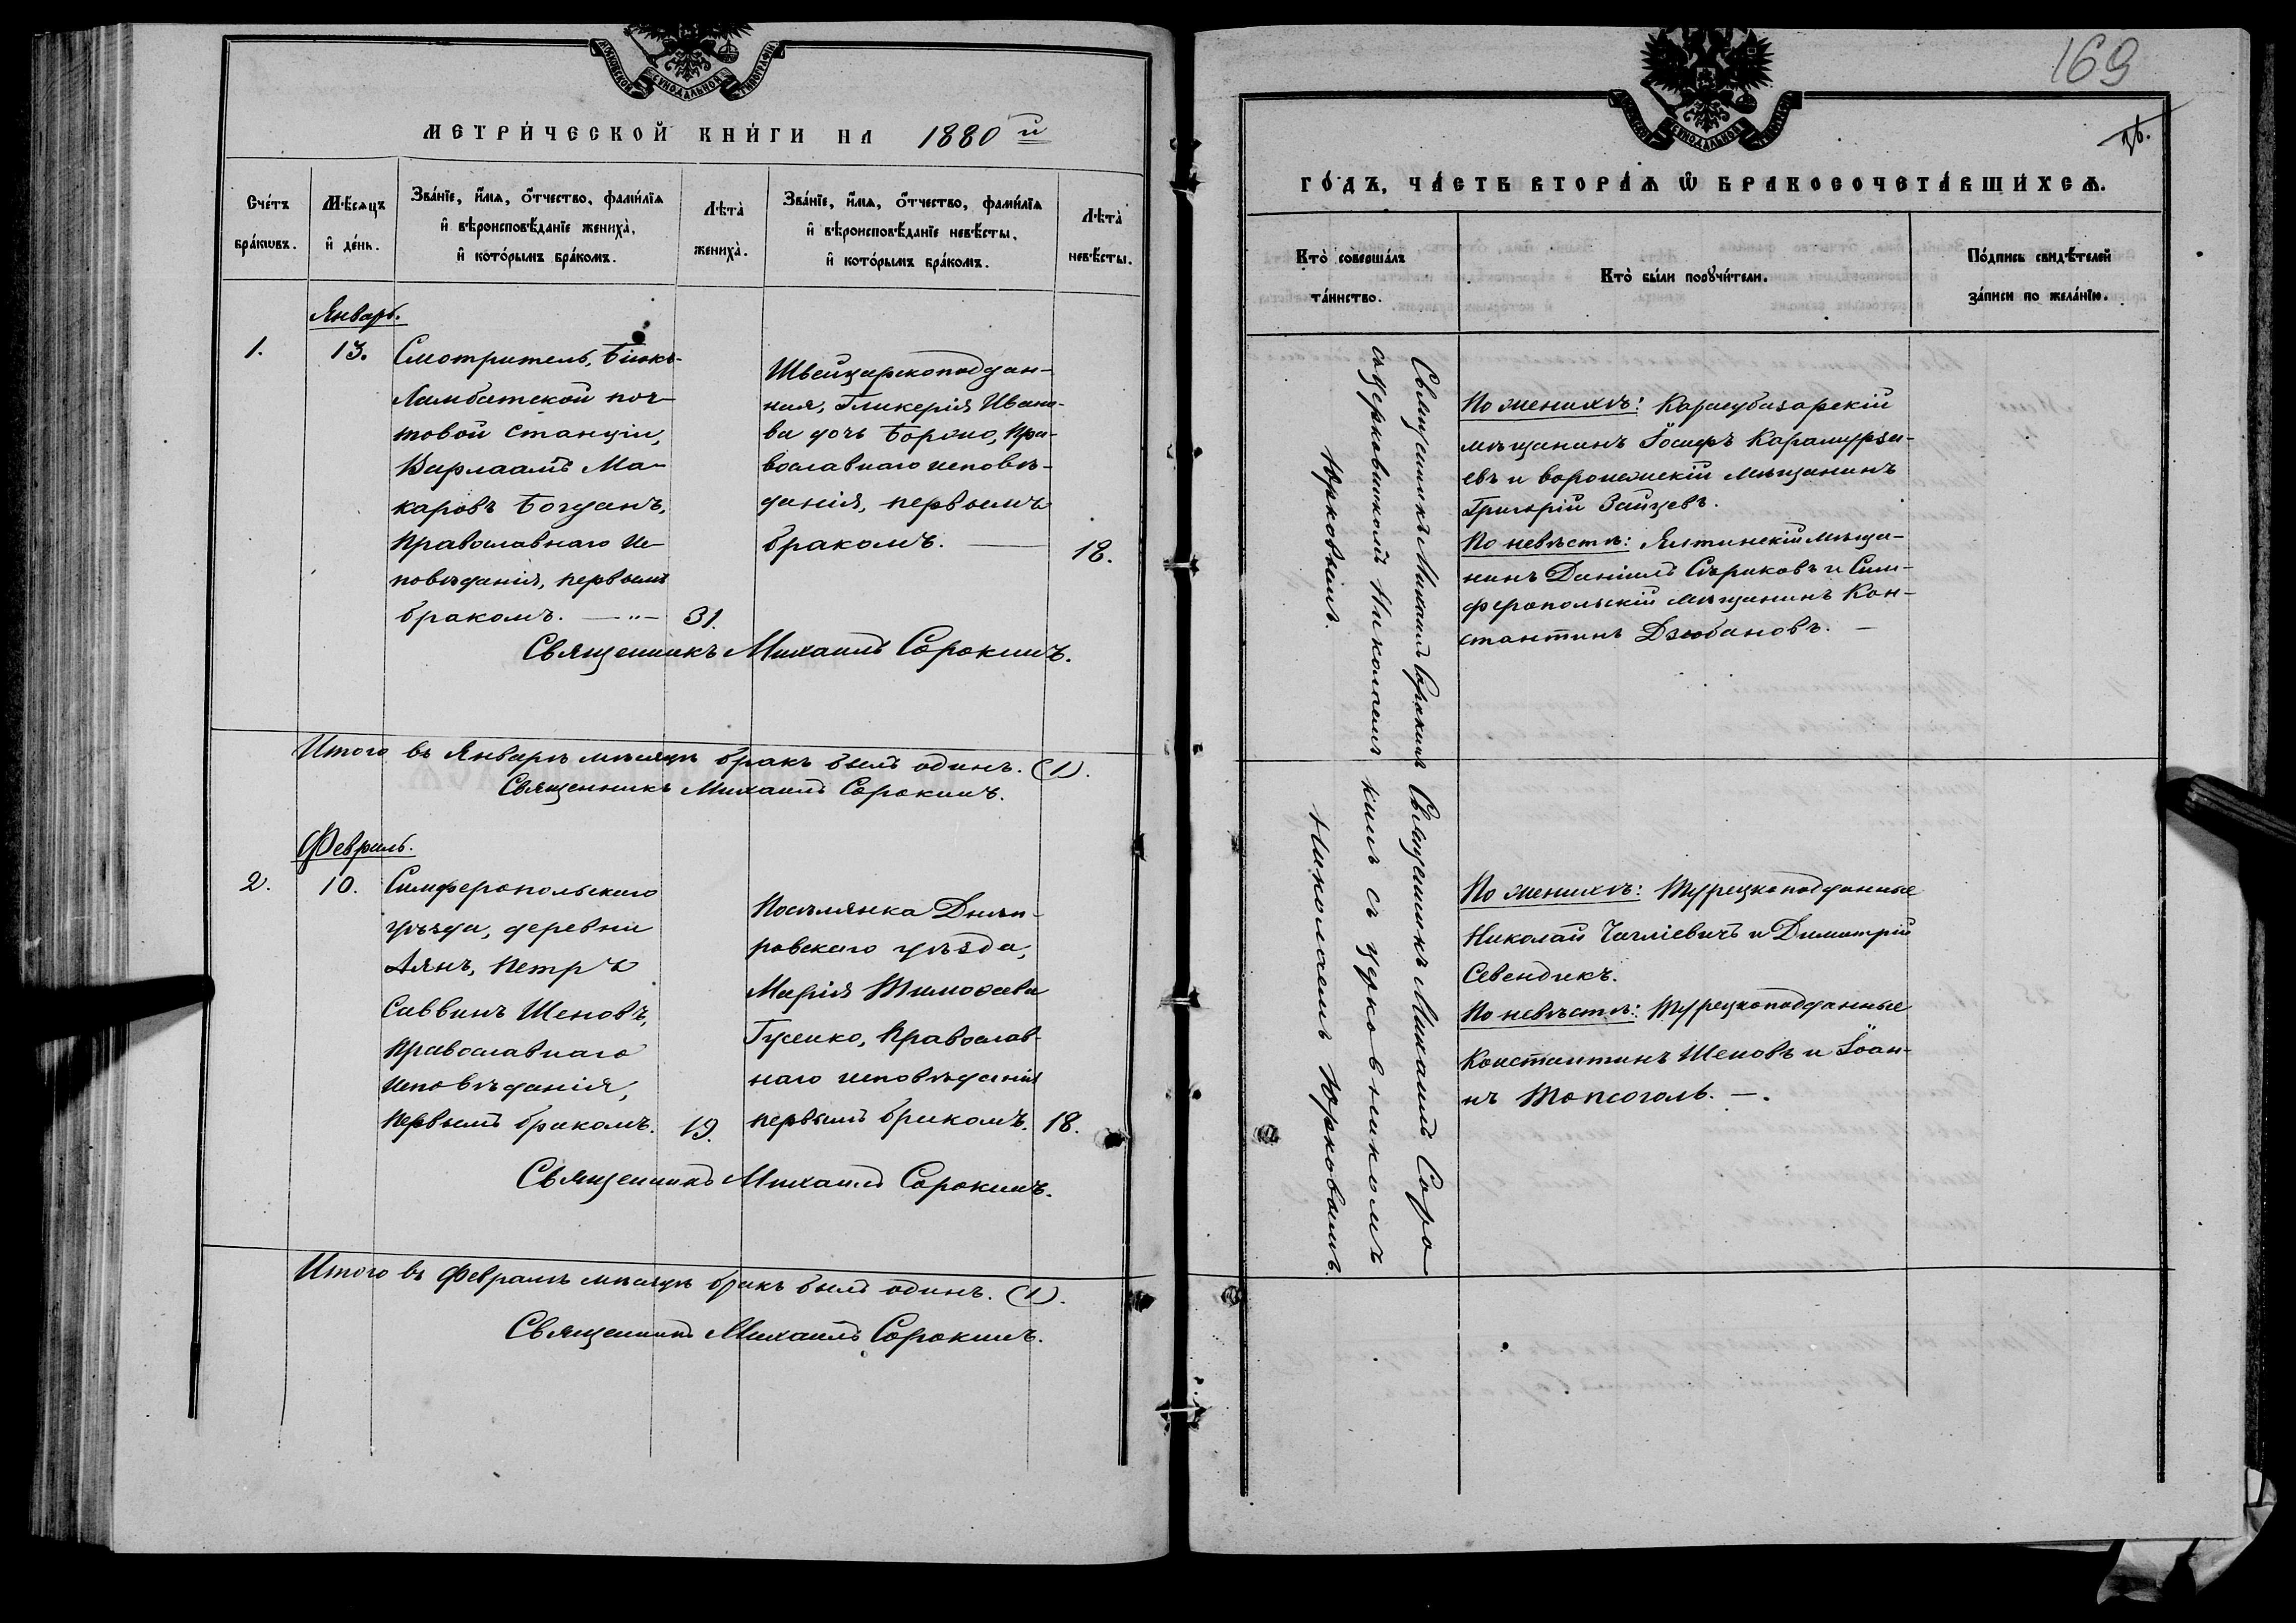 МОСКОВСКОЙ СѴНОДАЛЬНОЙ ТИПОГРАФІИ
МЕТРИ́ЧЕСКОЙ КНИ́ГИ НА 1880й
Сче́тъ бра́ковъ.
Мѣ́сяцъ и҆ де́нь.
Зва́нїе, и҆́мѧ, ѻ҆́тчество, фами́лїѧ и҆ вѣроисповѣ́данїе жениха̀, и҆ кото́рымъ бра́комъ.
Лѣта̀ жениха̀.
Зва́нїе, и҆́мѧ, ѻ҆́тчество, фами́лїѧ и҆ вѣроисповѣ́данїе невѣ́сты, и҆ кото́рымъ бра́комъ.
Лѣта̀ невѣ́сты.
Январь.
1.
13.
Смотритель, Біюкъ-
Ламбатской поч-
товой станціи,
Варлаамъ Ма-
каровъ Богданъ,
Православнаго Ис-
повѣданія, первымъ
бракомъ. — „ —
31.
Швейцарскоподдан-
ная, Гликерія Ивано-
ва дочь Боргно, Пра-
вославнаго исповѣ-
данія, первымъ
бракомъ. —
18.
Священникъ Михаилъ Сорокинъ.
Итого въ Январѣ мѣсяцѣ бракъ былъ одинъ. (1).
Священникъ Михаилъ Сорокинъ.
Февраль.
2.
10.
Симферопольскаго
уѣзда, деревни
Аянъ, Петръ
Саввинъ Шеновъ,
Православнаго
исповѣданія,
первымъ бракомъ.
19.
Поселянка Днѣп-
ровскаго уѣзда,
Марія Тимоѳеева
Гусенко, Православ-
наго исповѣданія
первымъ бракомъ.
18.
Священникъ Михаилъ Сорокинъ.
Итого въ Февралѣ мѣсяцѣ бракъ былъ одинъ. (1).
Священникъ Михаилъ Сорокинъ.
169
МОСКОВСКОЙ СѴНОДАЛЬНОЙ ТИПОГРАФІИ
ГО́ДЪ, ЧА́СТЬ ВТОРА́Ѧ Ѽ БРАКОСОЧЕТА́ВШИХСѦ.
Кто̀ соверша́лъ та́инство.
Кто̀ бы́ли порꙋчи́тели.
По́дпись свидѣ́телей за́писи по жела́нїю.
Священникъ Михаилъ Сорокинъ
съ церковникомъ Николаемъ
Юрковымъ.
По женихѣ: Карасубазарскій
мѣщанинъ Іосифъ Карамурза-
евъ и воронежскій мѣщанинъ
Григорій Зайцевъ.
По невѣстѣ: Ялтинскій мѣща-
нинъ Даніилъ Сѣриковъ и Сим-
феропольскій мѣщанинъ Кон-
стантинъ Дзюбановъ. —
Священникъ Михаилъ Соро
кинъ съ церковникомъ
Николаемъ Юрковымъ.
По женихѣ: Турецкоподданные
Николай Чагліевичъ и Димитрій
Севендикъ.
По невѣстѣ: Турецкоподданные
Константинъ Шеновъ и Іоан-
нъ Топсоголь. —.